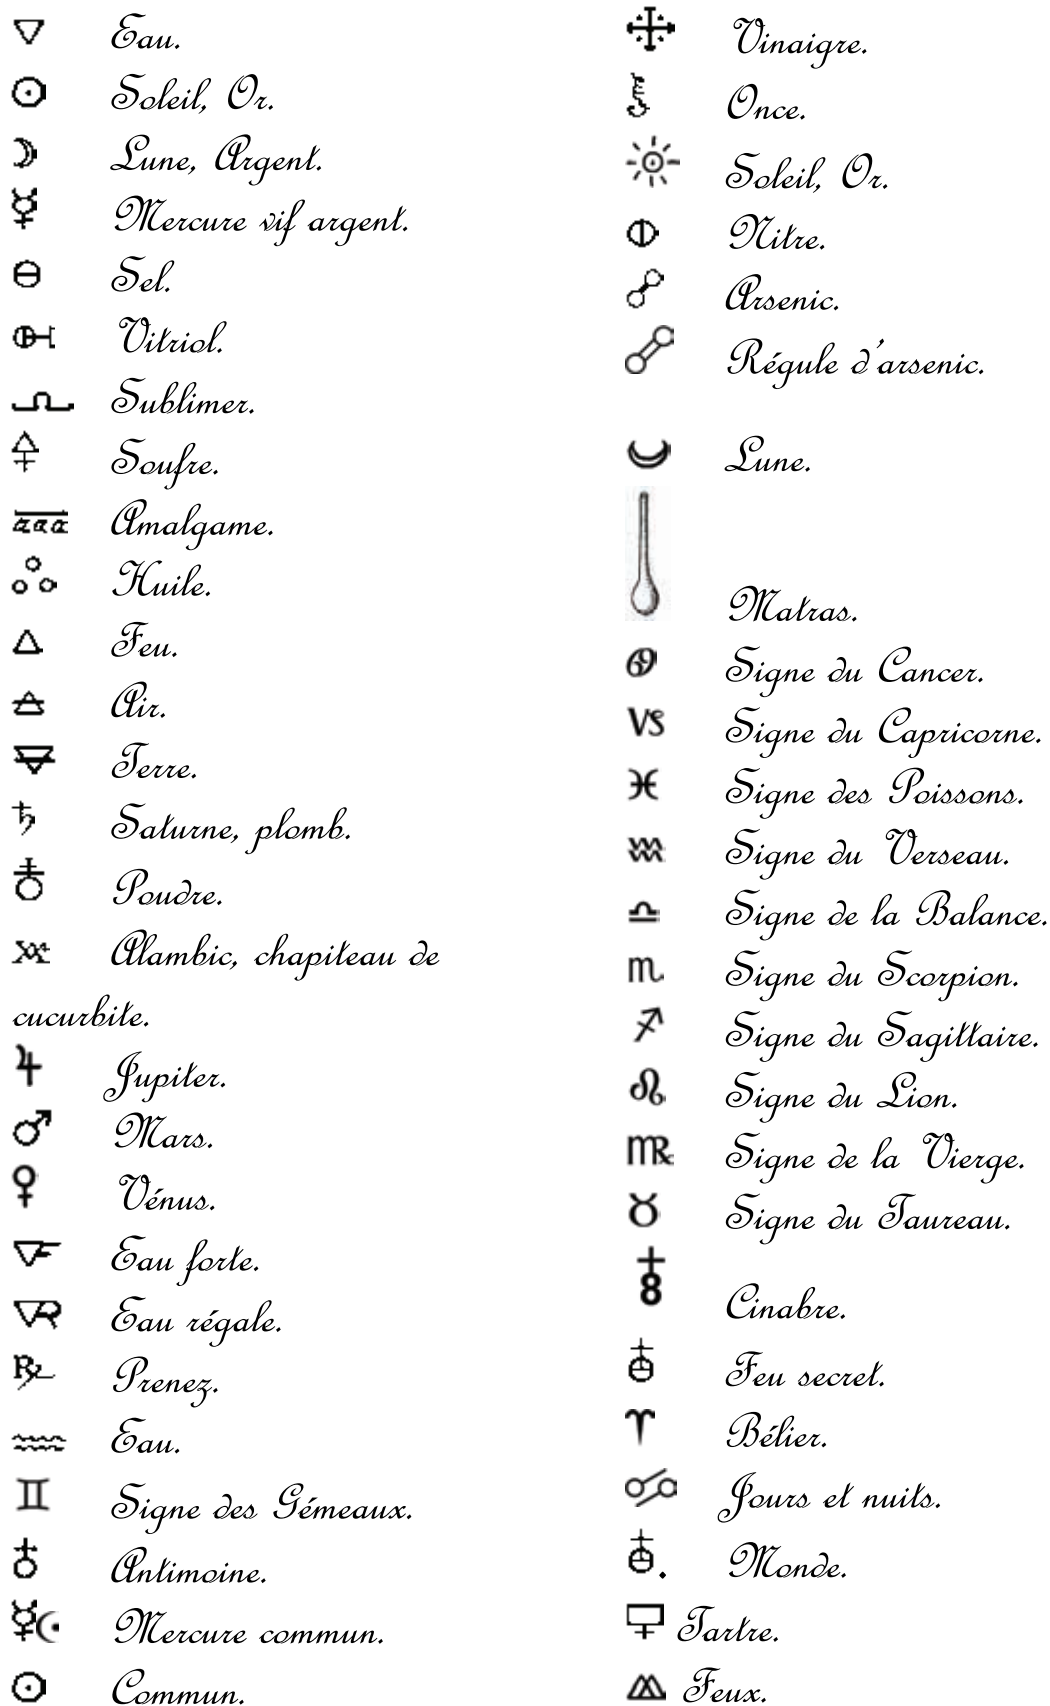 Eau.
Soleil, Or.
Lune, Argent.
Mercure vif argent.
Sel.
Vitriol.
Sublimer.
Soufre.
aaa Amalgame.
Huile.
Feu.
Air.
Terre.
Saturne, plomb.
Poudre.
Alambic, chapiteau de
cucurbite.
Jupiter.
Mars.
Vénus.
Eau forte.
Eau régale.
Prenez.
Eau.
Signe des Gémeaux.
Antimoine.
Mercure commun.
Commun.
Vinaigre.
Once.
Soleil, Or.
Nitre.
Arsenic.
Régule d'arsenic.
Lune.
Matras.
Signe du Cancer.
VS Signe du Capricorne.
Signe des Poissons.
Signe du Verseau.
Signe de la Balance.
Signe du Scorpion.
Signe du Sagittaire.
Signe du Lion.
Signe de la Vierge.
Signe du Taureau.
Cinabre.
Feu secret.
Bélier.
Jours et nuits.
Monde.
Tartre.
Feux.